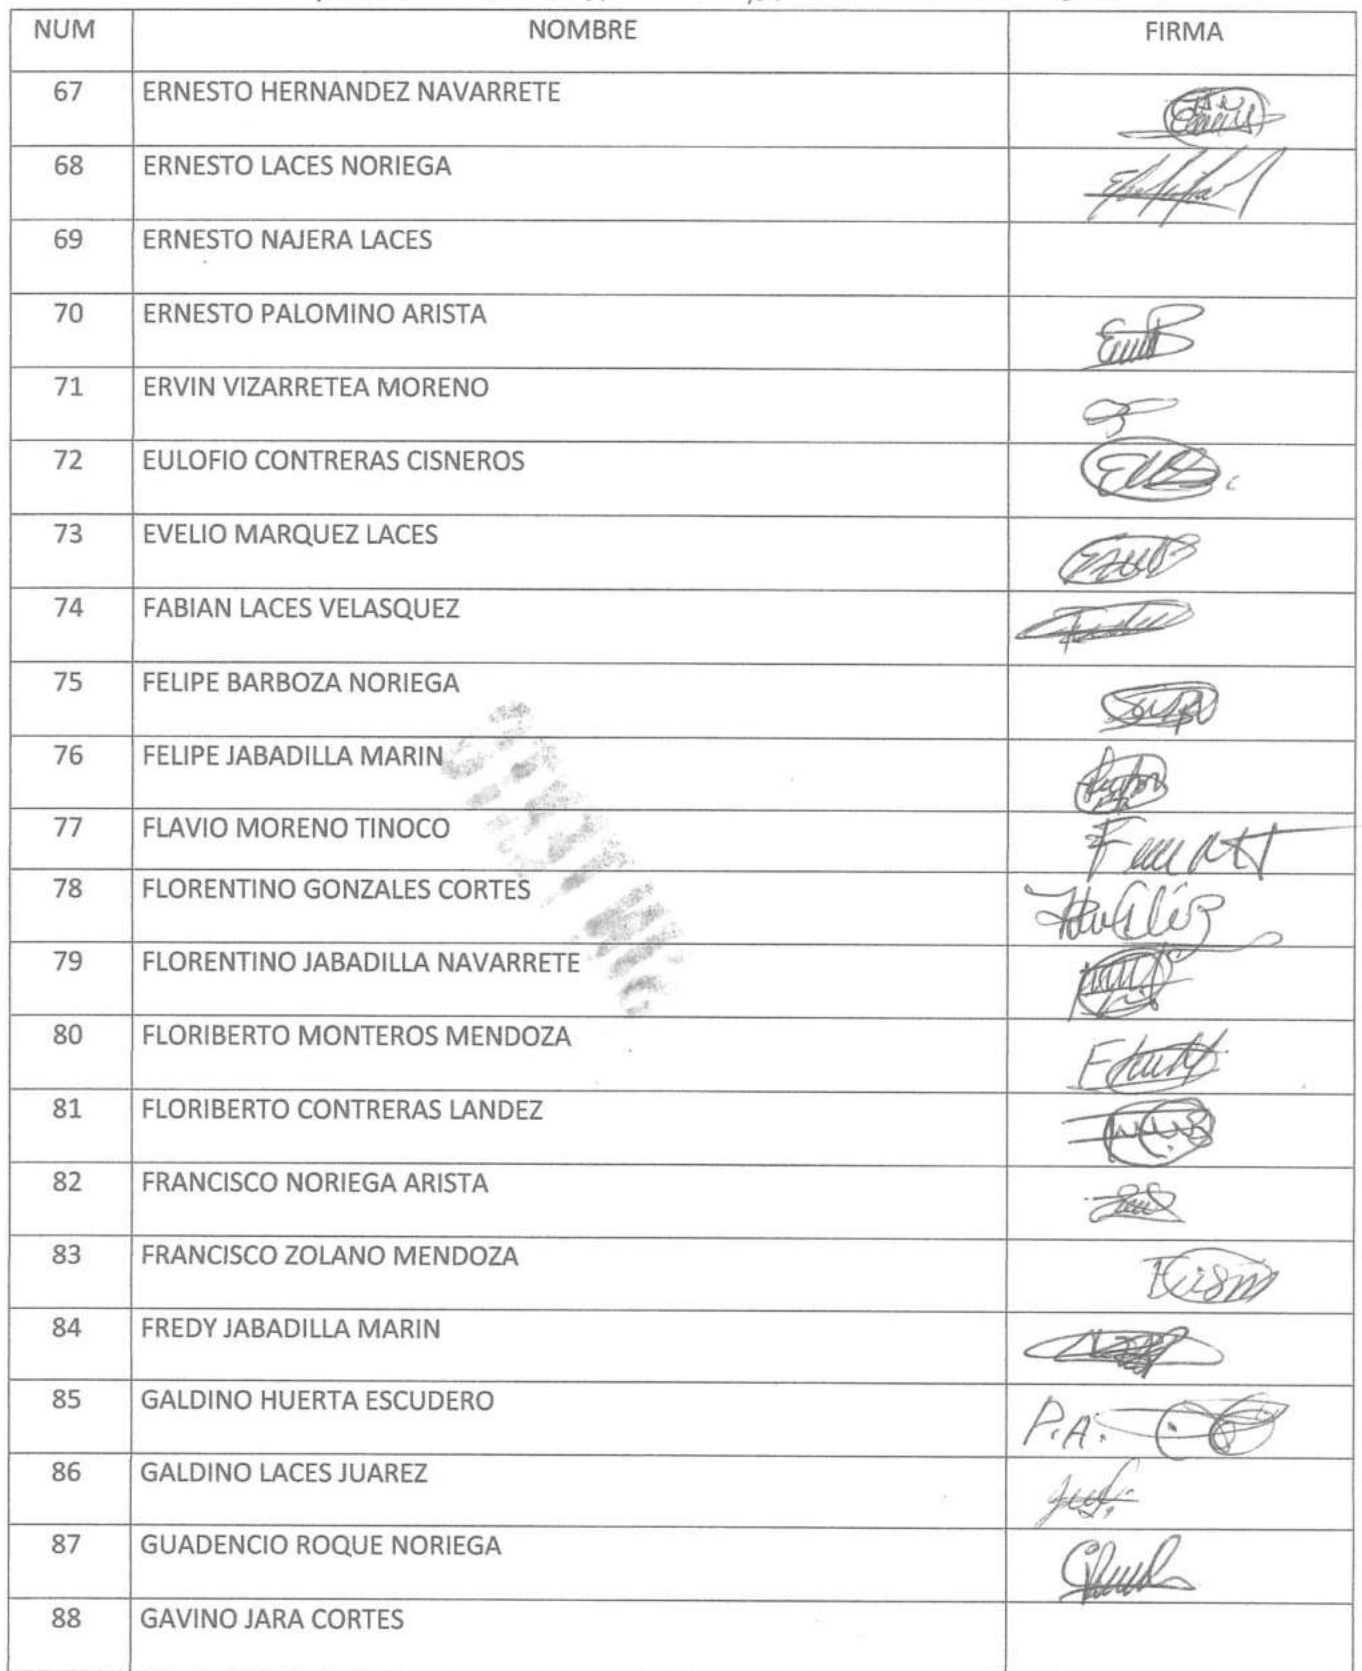 NUM NOMBRE FIRMA
67 ERNESTO HERNANDEZ NAVARRETE
68 ERNESTO LACES NORIEGA
69 ERNESTO NAJERA LACES
70 ERNESTO PALOMINO ARISTA
71 ERVIN VIZARRETEA MORENO
72 EULOFIO CONTRERAS CISNEROS
73 EVELIO MARQUEZ LACES
74 FABIAN LACES VELASQUEZ
75 FELIPE BARBOZA NORIEGA
76 FELIPE JABADILLA MARIN
77 FLAVIO MORENO TINOCO
78 FLORENTINO GONZALES CORTES
79 FLORENTINO JABADILLA NAVARRETE
80 FLORIBERTO MONTEROS MENDOZA
81 FLORIBERTO CONTRERAS LANDEZ
82 FRANCISCO NORIEGA ARISTA
83 FRANCISCO ZOLANO MENDOZA
84 FREDY JABADILLA MARIN
85 GALDINO HUERTA ESCUDERO P.A.
86 GALDINO LACES JUAREZ
87 GUADENCIO ROQUE NORIEGA
88 GAVINO JARA CORTES